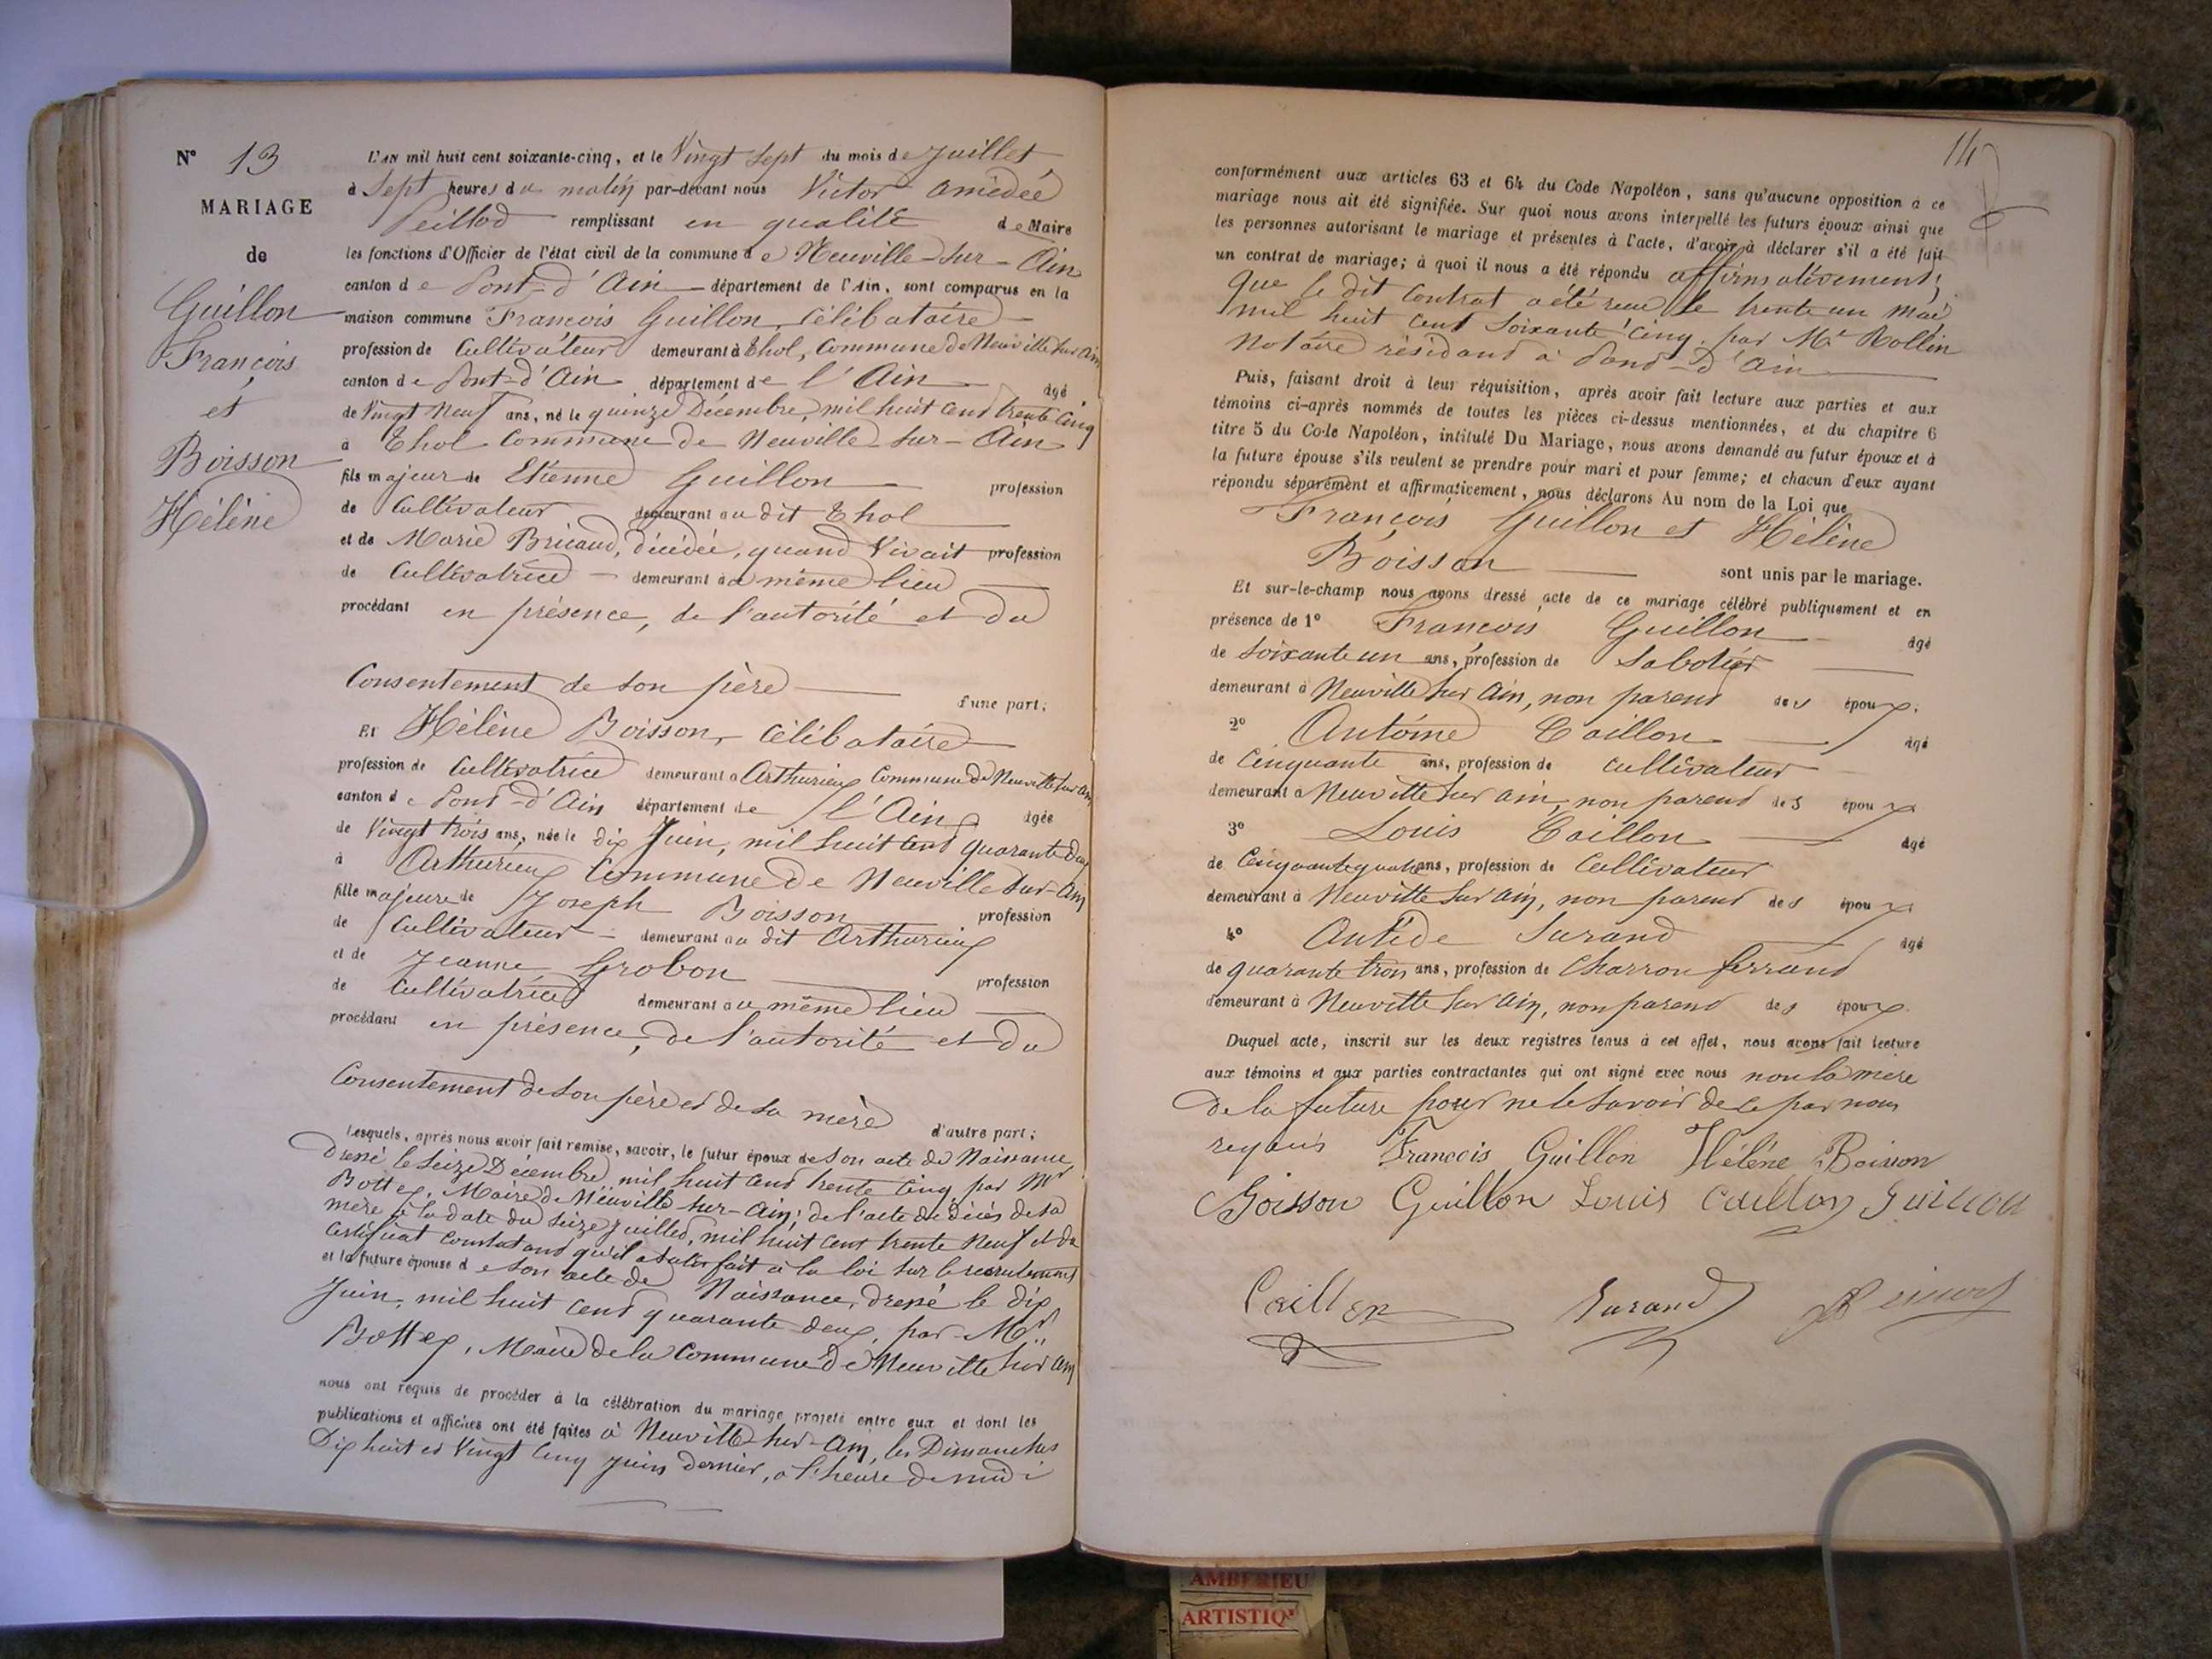 N° 13
MARIAGE
de
Guillon
François
et
Boisson
Hélène
L'AN mil huit cent soixante-cinq, et le Vingt Sept du mois de Juillet
à Sept heures du matin par-devant nous Victor Amédée
Peillod remplissant en qualité de Maire
les fonctions d'Officier de l'état civil de la commune de Neuville-sur-Ain
canton de Pont-d'Ain département de l'Ain, sont comparus en la
maison commune François Guillon, Célibataire
profession de Cultivateur demeurant à Thol, Commune de Neuville sur Ain
canton de Pont-d'Ain département de l'Ain âgé
de Vingt Neuf ans, né le quinze Décembre, mil huit cent trente cinq
à Thol Commune de Neuville-sur-Ain
fils majeur de Etienne Guillon profession
de Cultivateur demeurant au dit Thol
et de Marie Bricaud, décédée, quand Vivait profession
de Cultivatrice demeurant au même lieu
procédant en présence, de l'autorité et du
Consentement de son père d'une part;
Et Hélène Boisson, Célibataire
profession de Cultivatrice demeurant à Arthurieux Commune de Neuville sur Ain
canton de Pont-d'Ain département de l'Ain âgée
de Vingt trois ans, née le dix Juin, mil huit cent quarante deux
à Arthurieux Commune de Neuville sur Ain
fille majeure de Joseph Boisson profession
de Cultivateur demeurant au dit Arthurieux
et de Jeanne Grobon profession
de Cultivatrice demeurant au même lieu
procédant en présence, de l'autorité et du
Consentement de son père et de sa mère d'autre part;
Lesquels, après nous avoir fait remise, savoir, le futur époux de son acte de Naissance
Dressé le Seize Décembre, mil huit cent trente cinq, par Mr
Bottex, Maire de Neuville sur-Ain; de l'acte de décès de sa
mère à la date du seize Juillet, mil huit cent trente Neuf et du
certificat constatant qu'il a satisfait à la loi sur le recrutement
et la future épouse de son acte de Naissance, dressé le dix
Juin, mil huit cent quarante deux, par Mr
Bottex, Maire de la Commune de Neuville sur Ain
nous ont requis de procéder à la célébration du mariage projeté entre eux et dont les
publications et affiches ont été faites à Neuville-sur-Ain, les Dimanches
Dix huit et Vingt Cinq Juin dernier, à l'heure de midi
14
conformément aux articles 63 et 64 du Code Napoléon, sans qu'aucune opposition à ce
mariage nous ait été signifiée. Sur quoi nous avons interpellé les futurs époux ainsi que
les personnes autorisant le mariage et présentes à l'acte, d'avoir à déclarer s'il a été fait
un contrat de mariage; à quoi il nous a été répondu affirmativement;
que le dit Contrat a été reçu le trente un Mai
mil huit cent soixante Cinq, par Me Rollin
Notaire résidant à Pont-d'Ain
Puis, faisant droit à leur réquisition, après avoir fait lecture aux parties et aux
témoins ci-après nommés de toutes les pièces ci-dessus mentionnées, et du chapitre 6
titre 5 du Code Napoléon, intitulé Du Mariage, nous avons demandé au futur époux et à
la future épouse s'ils veulent se prendre pour mari et pour femme; et chacun d'eux ayant
répondu séparément et affirmativement, nous déclarons Au nom de la Loi que
François Guillon et Hélène
Boisson sont unis par le mariage.
Et sur-le-champ nous avons dressé acte de ce mariage célébré publiquement et en
présence de 1° François Guillon âgé
de soixante un ans, profession de Sabotier
demeurant à Neuville sur Ain, non parent des époux.
2° Antoine Caillon âgé
de Cinquante ans, profession de Cultivateur
demeurant à Neuville sur Ain, non parent des époux
3° Louis Caillon âgé
de Cinquante quatre ans, profession de Cultivateur
demeurant à Neuville sur Ain, non parent des époux
4° Antide Jurand âgé
de quarante trois ans, profession de Charron ferrand
demeurant à Neuville sur Ain, non parent des époux
Duquel acte, inscrit sur les deux registres tenus à cet effet, nous avons fait lecture
aux témoins et aux parties contractantes qui ont signé avec nous non la mère
De la future pour ne le savoir de ce par nous
requis François Guillon Hélène Boisson
Boisson Guillon Louis Caillon Guillon
Caillon Jurand
AMBERIEU
ARTISTIQ